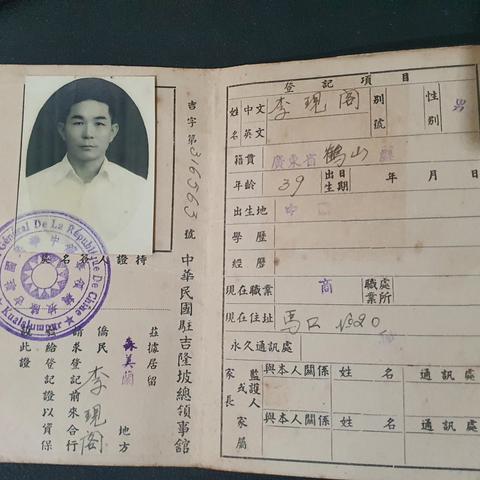 吉字第316563號
中華民國駐吉隆坡總領事館
茲據居留
森美蘭 地方
僑民 李現阁
請求登記前來合行
發給登記證以資保
護此證
持證人簽名
Général De La République De Chine
Kualalumpur
登記項目
姓名 中文 李現阁 別號 性別 男
英文
籍貫 廣東省 鶴山 縣
年齡 39 出生日期 年 月 日
出生地 中國
學歷
經歷
現在職業 商 職業處所
現在住址 馬口 No20
永久通訊處
家長或監護人 與本人關係 姓名 通訊處
家屬 與本人關係 姓名 通訊處